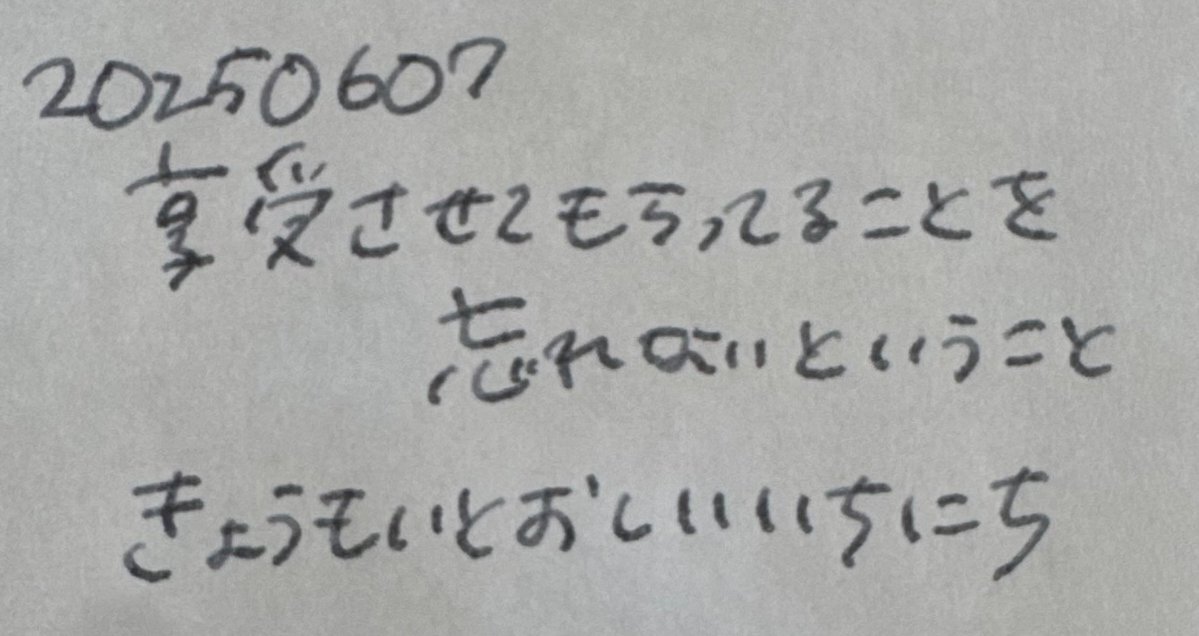 20250607
享受させてもらってることを
忘れないということ
きょうもいとおしいいちにち